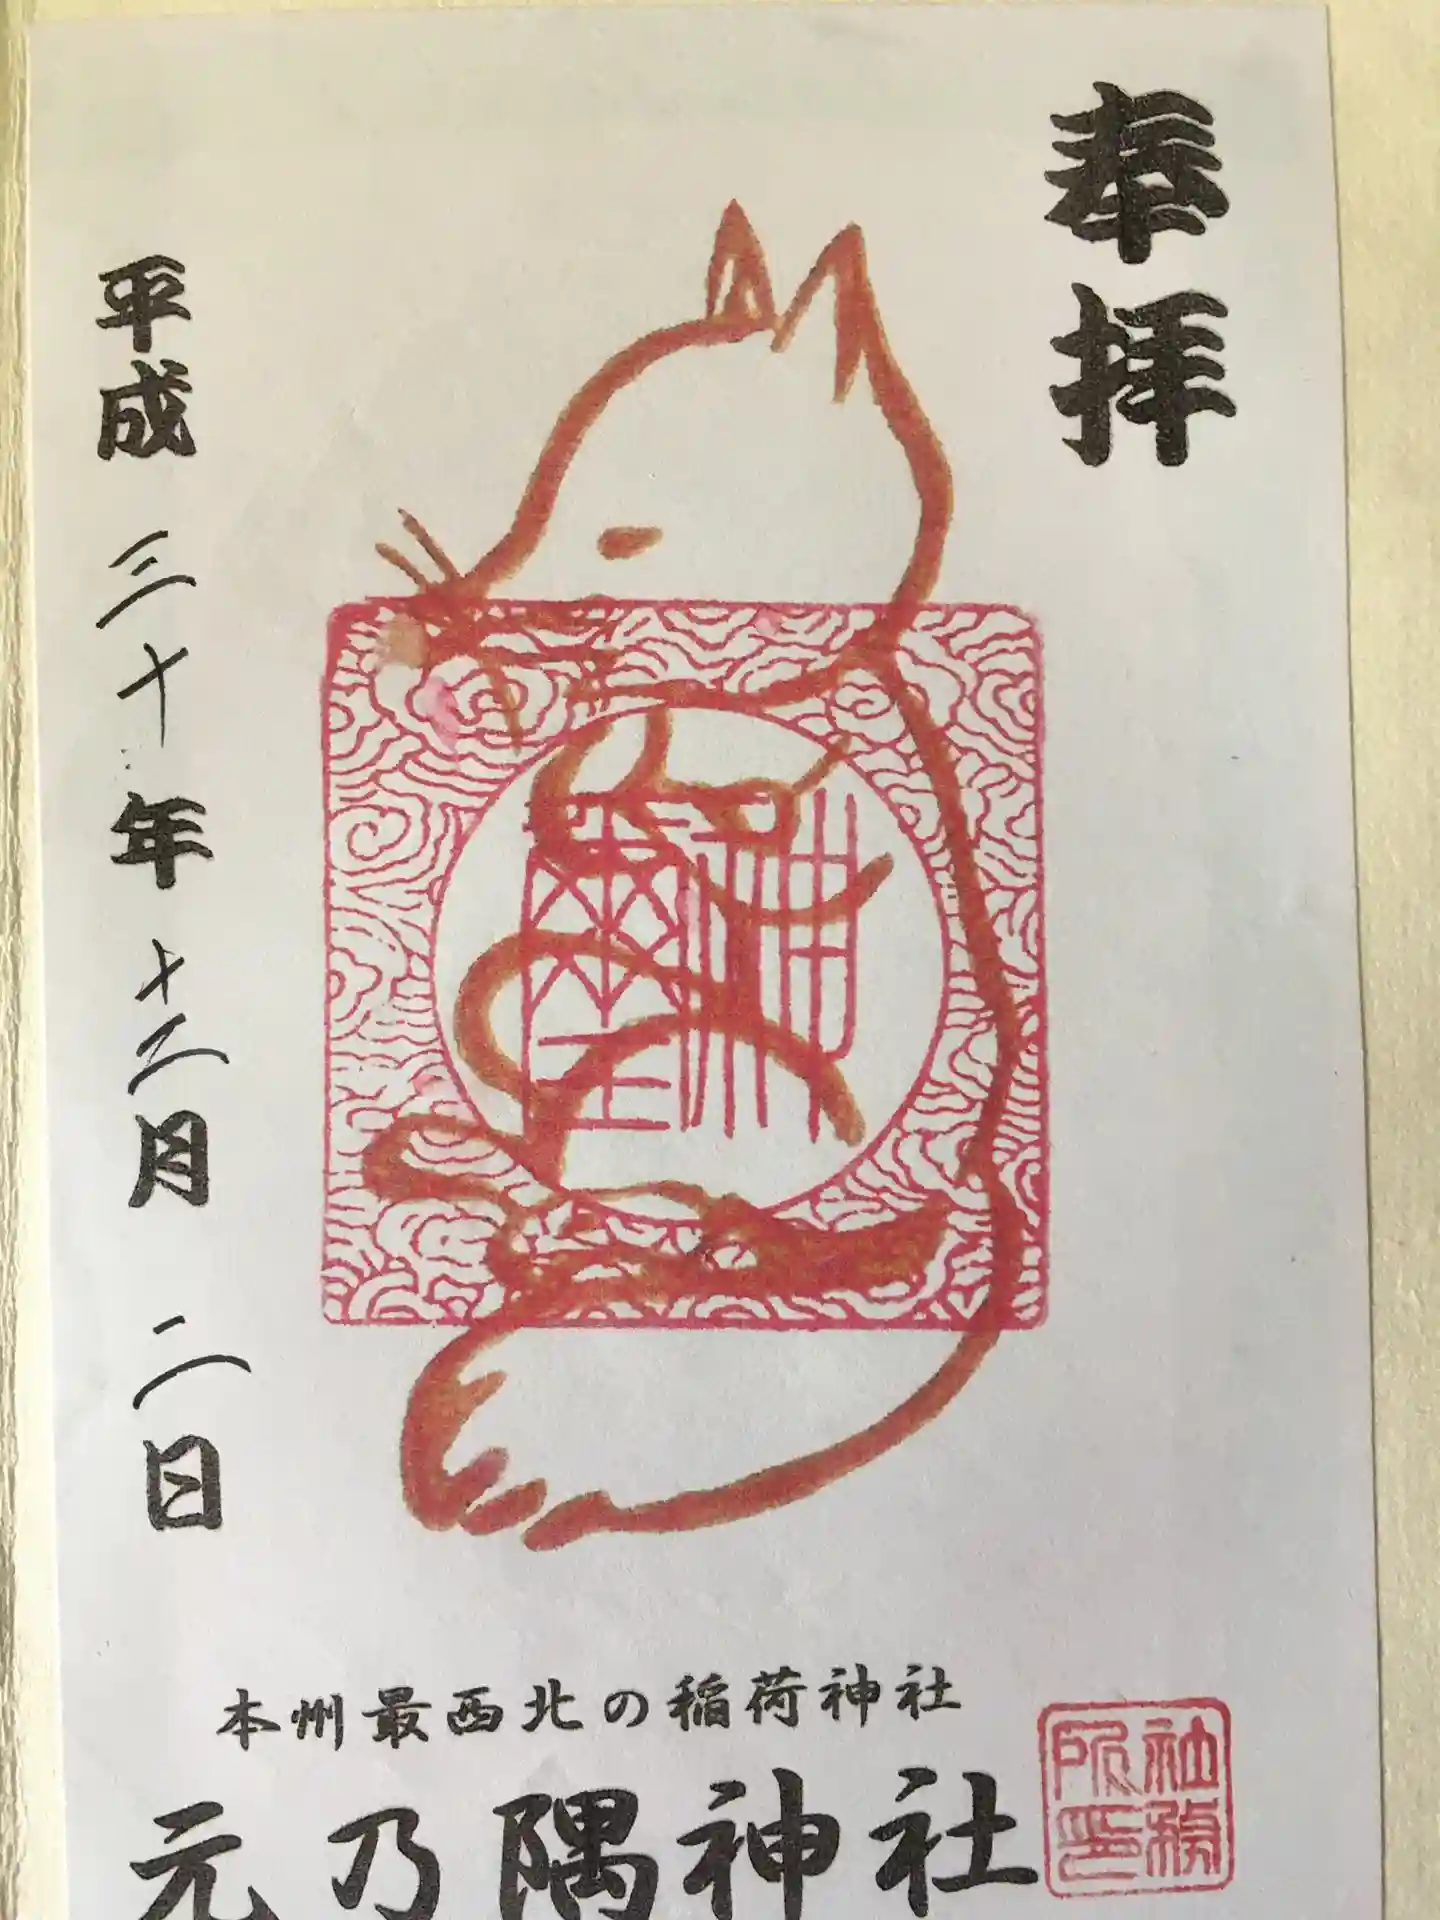 奉拝
神璽
平成三十年十二月二日
本州最西北の稲荷神社
元乃隅神社
社務
所印